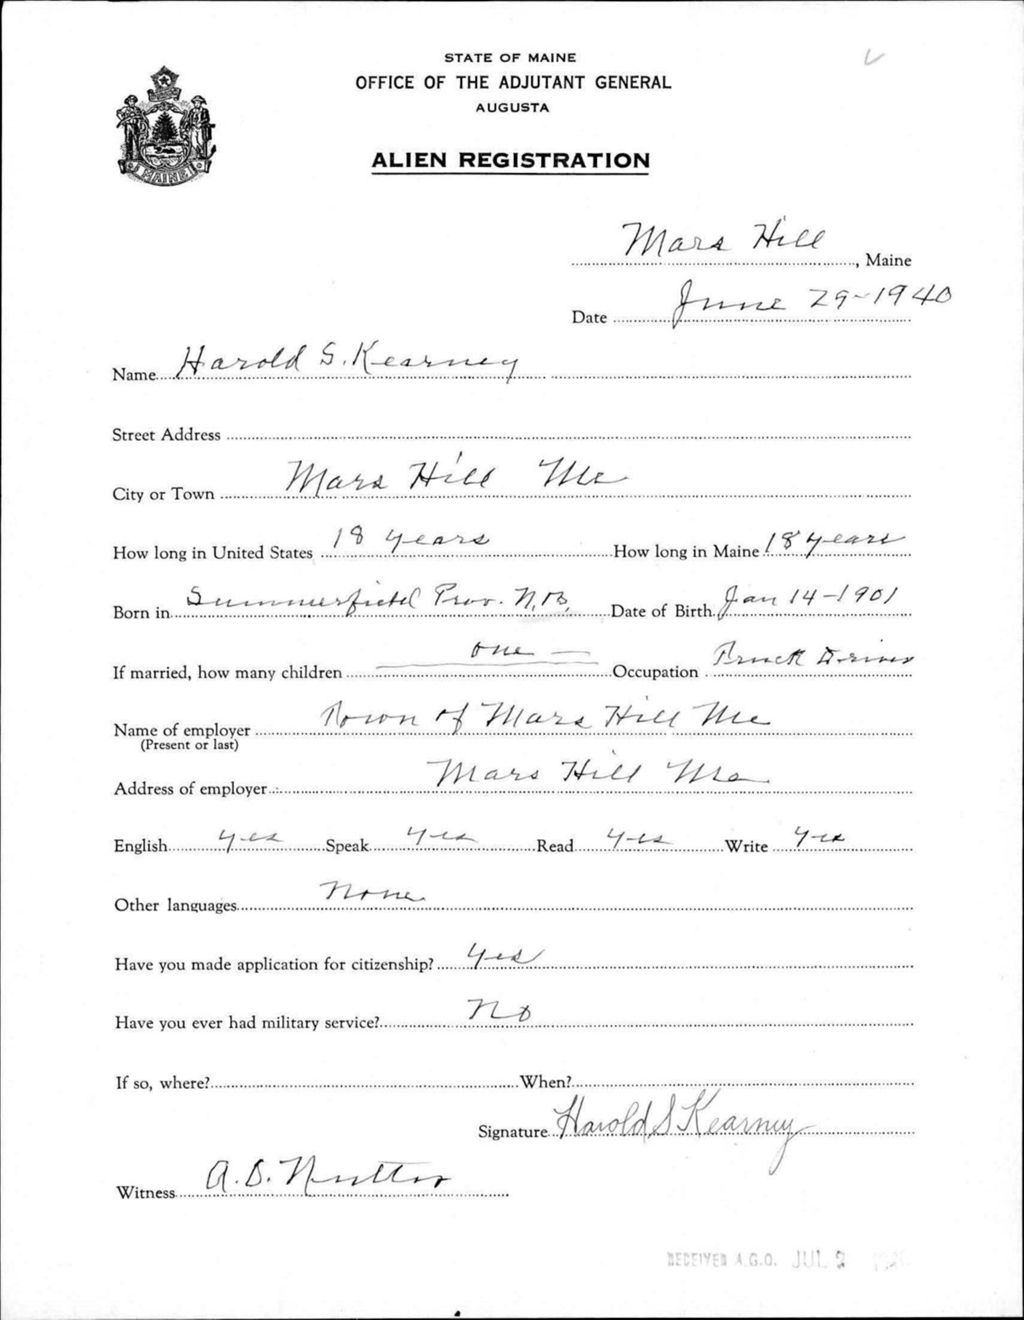 STATE OF MAINE
OFFICE OF THE ADJUTANT GENERAL
AUGUSTA
ALIEN REGISTRATION
MAINE
Mars Hill, Maine
Date June 29-1940
Name Harold S. Kearney
Street Address
City or Town Mars Hill Me
How long in United States 18 years How long in Maine 18 years
Born in Summerfield Prov. N.B. Date of Birth Jan 14-1901
If married, how many children one Occupation Truck Driver
Name of employer Town of Mars Hill Me
(Present or last)
Address of employer Mars Hill Me
English yes Speak yes Read yes Write yes
Other languages None
Have you made application for citizenship? yes
Have you ever had military service? No
If so, where? When?
Signature Harold S Kearney
Witness A.D. Nutter
RECEIVED A.G.O. JUL 2